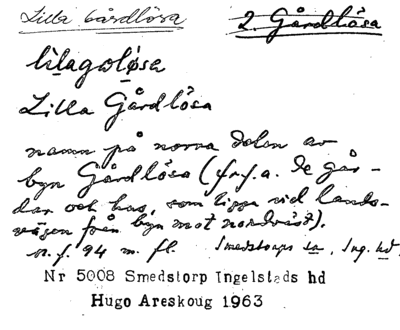 Lilla Gårdlösa
2. Gårdlösa
lilagoløsa
Lilla Gårdlösa
namn på norra delen av
byn Gårdlösa (fr.f.a. de går-
dar och hus, som ligga vid lands-
vägen från byn mot nordväst).
n.f. 94 m. fl. Smedstorps sn, Ing. hd.
Nr 5008 Smedstorp Ingelstads hd
Hugo Areskoug 1963